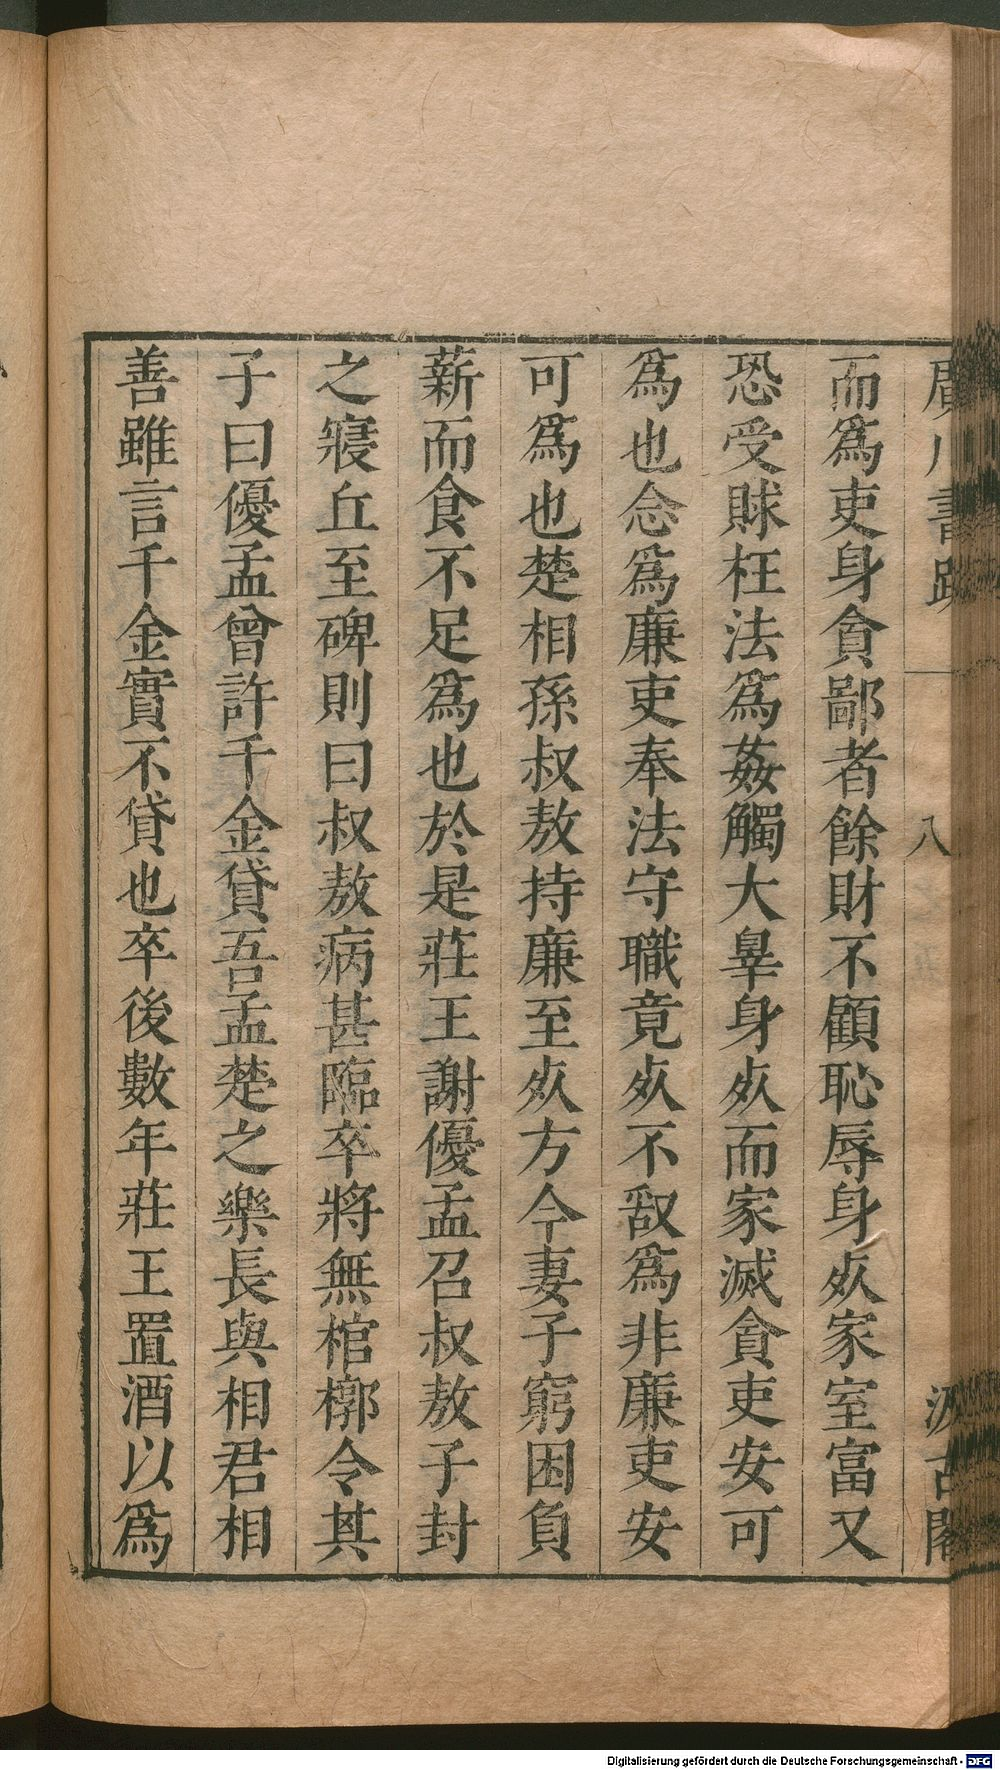 廣川書跋 八 汲古閣
而爲吏身貪鄙者餘財不顧恥辱身㱙家室富又
恐受賕枉法爲姦觸大辠身㱙而家滅貪吏安可
爲也念爲廉吏奉法守職竟㱙不敢爲非廉吏安
可爲也楚相孫叔敖持廉至㱙方今妻子窮困負
薪而食不足爲也於是莊王謝優孟召叔敖子封
之寢丘至碑則曰叔敖病甚臨卒將無棺槨令其
子曰優孟曾許千金貸吾孟楚之樂長與相君相
善雖言千金實不貸也卒後數年莊王置酒以爲
Digitalisierung gefördert durch die Deutsche Forschungsgemeinschaft - DFG